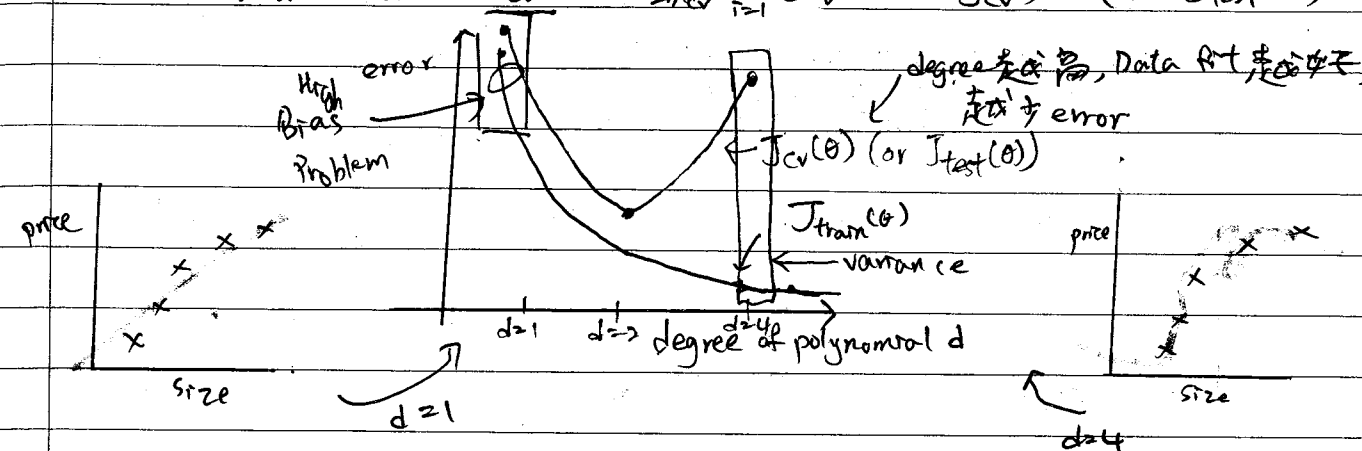 i=1
error
High
Bias
Problem
degree 越高, Data fit 越好
越少 error
J_cv(θ) (or J_test(θ))
J_train(θ)
variance
price
size
d=1
d=1
d=2
d=4
degree of polynomial d
price
size
d=4